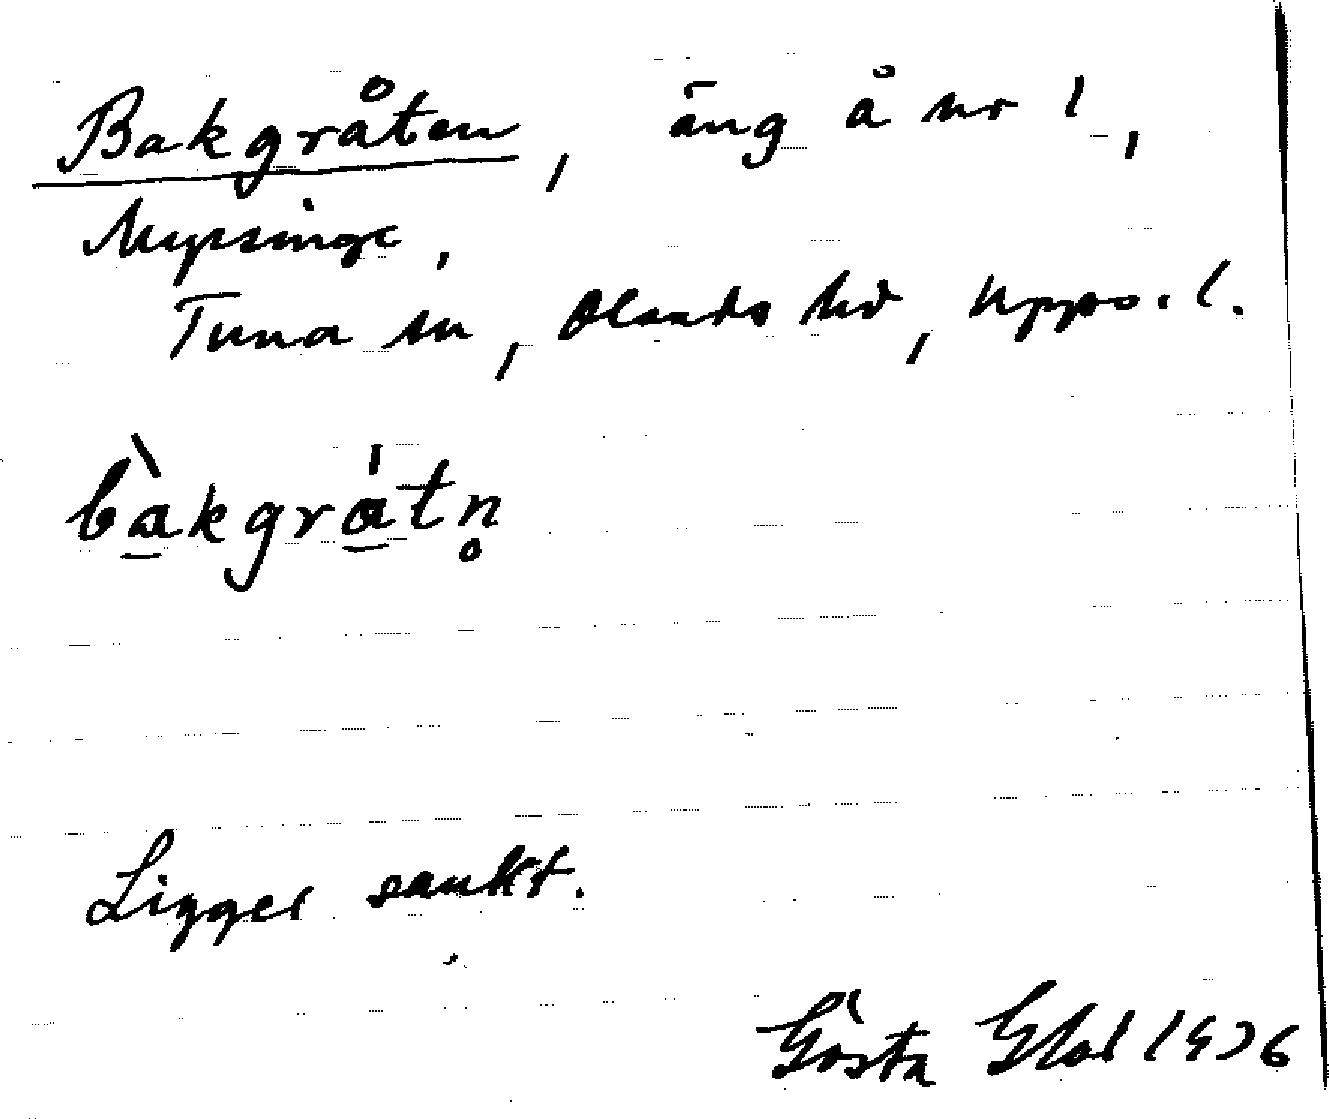 Bakgråten, äng å nr 1,
Myrsinge,
Tuna sn, Olands hd, Upps. l.
bàkgrátn̥
Ligger sankt.
Gösta 1936